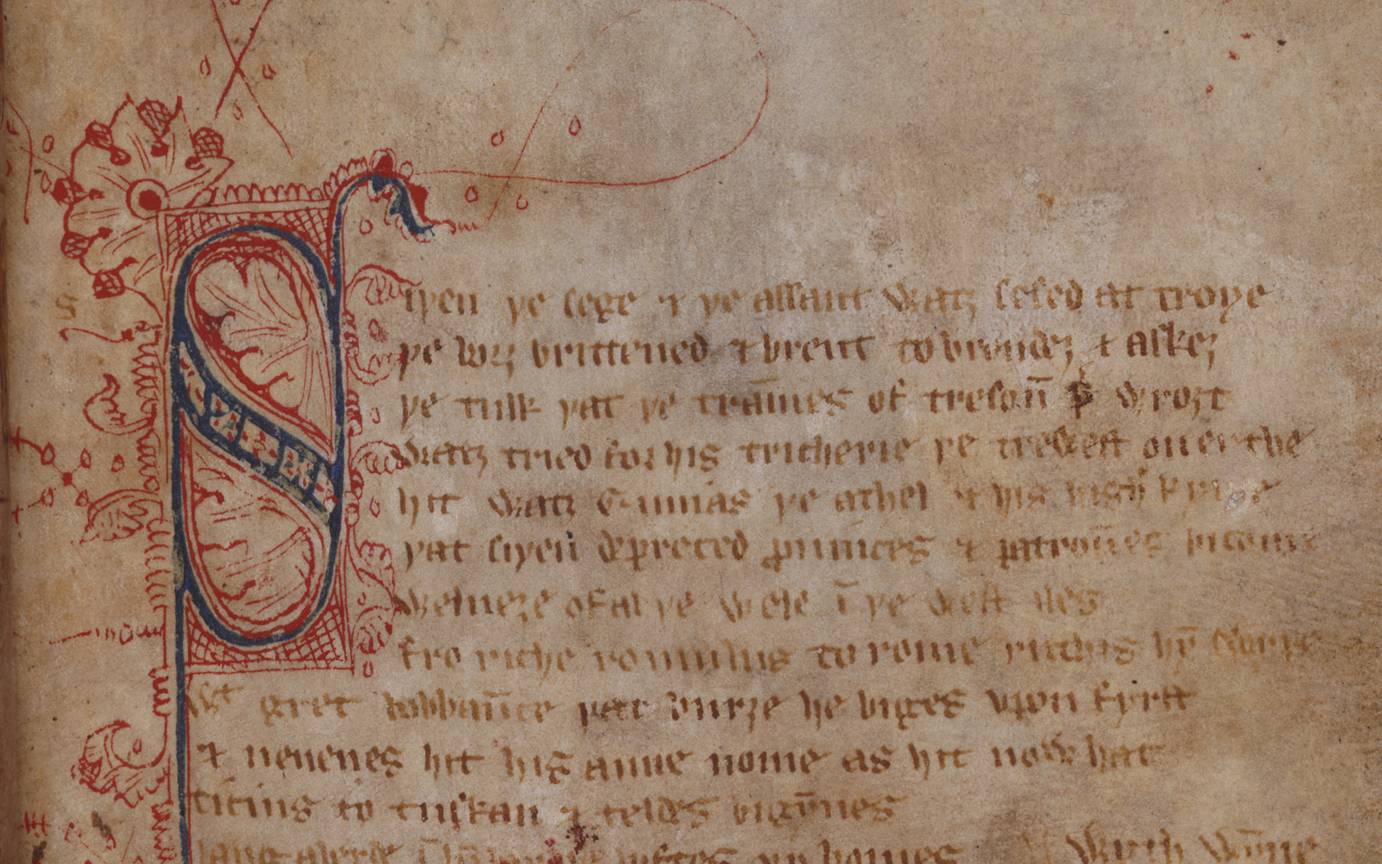 Siþen þe sege & þe assaut watz sesed at troye
þe borȝ brittened & brent to brondeȝ & askez
þe tulk þat þe trāmes of tresoūn þ̵ wroȝt
watz tried for his tricherie þe trewest on erthe
hit watz Ennias þe athel & his highe kynde
þat siþen depreced prouinces & patrounes bicome
welneȝe of al þe wele ī þe west iles
fro riche romulus to rome ricchis hȳ swyþe
wt gret bobbaūce þat burȝe he biges vpon fyrst
& neuenes hit his aune nome as hit now hat
ticius to tuskan & teldes bigȳnes